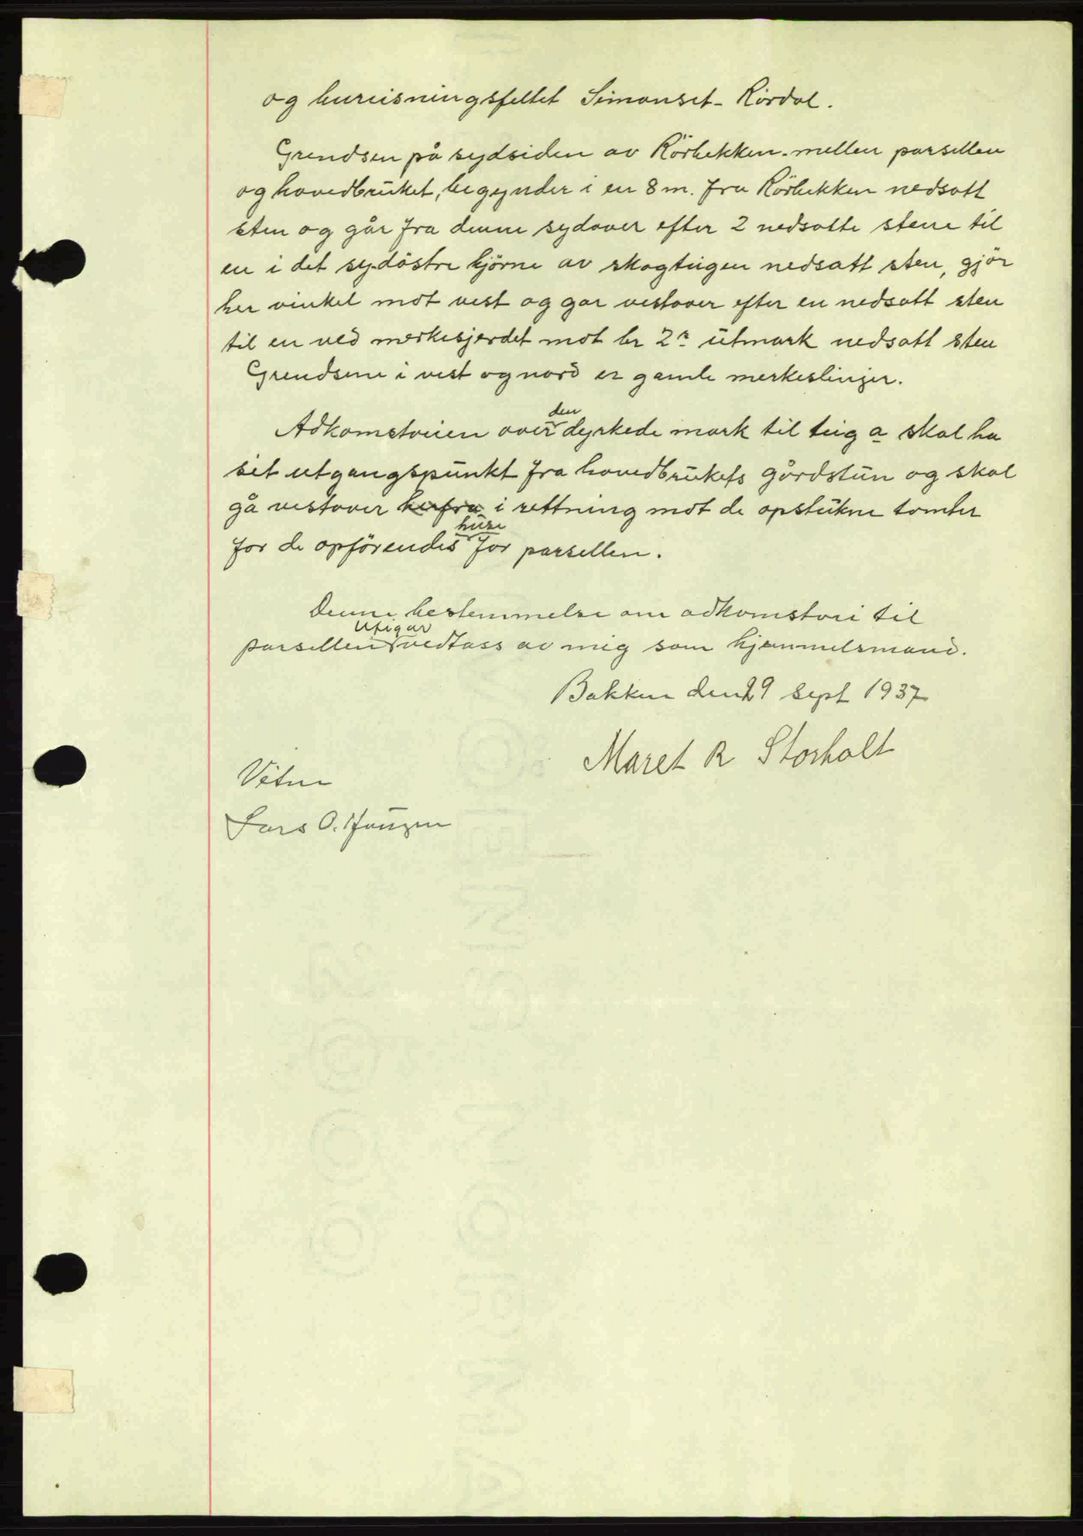 og bureisningsfeltet Simonset - Rørdal.
Grendsen på sydsiden av Rörbekken mellem parsellen
og hovedbruket, begynder i en 8 m. fra Rörbekken nedsatt
sten og går fra denne sydover efter 2 nedsatte stene til
en i det sydöstre hjörne av skogteigen nedsatt sten, gjör
her vinkel mot vest og gar vestover efter en nedsatt sten
til en ved merkesjerdet mot br 2 utmark nedsatt sten
Grendsene i vest og nord er gamle merkeslinjer.
Adkomstveien over den dyrkede mark til teig a skal ha
sit utgangspunkt fra hovedbrukets gårdstun og skal
gå vestover herfra i rettning mot de opstukne tomter
for de opförendes huse for parsellen.
Denne bestemmelse om adkomstvei til
parsellen Utigar vedtass av mig som hjemmelsmand.
Bakken den 29 sept 1937
Maret R Storholt
Vitne
Lars O.